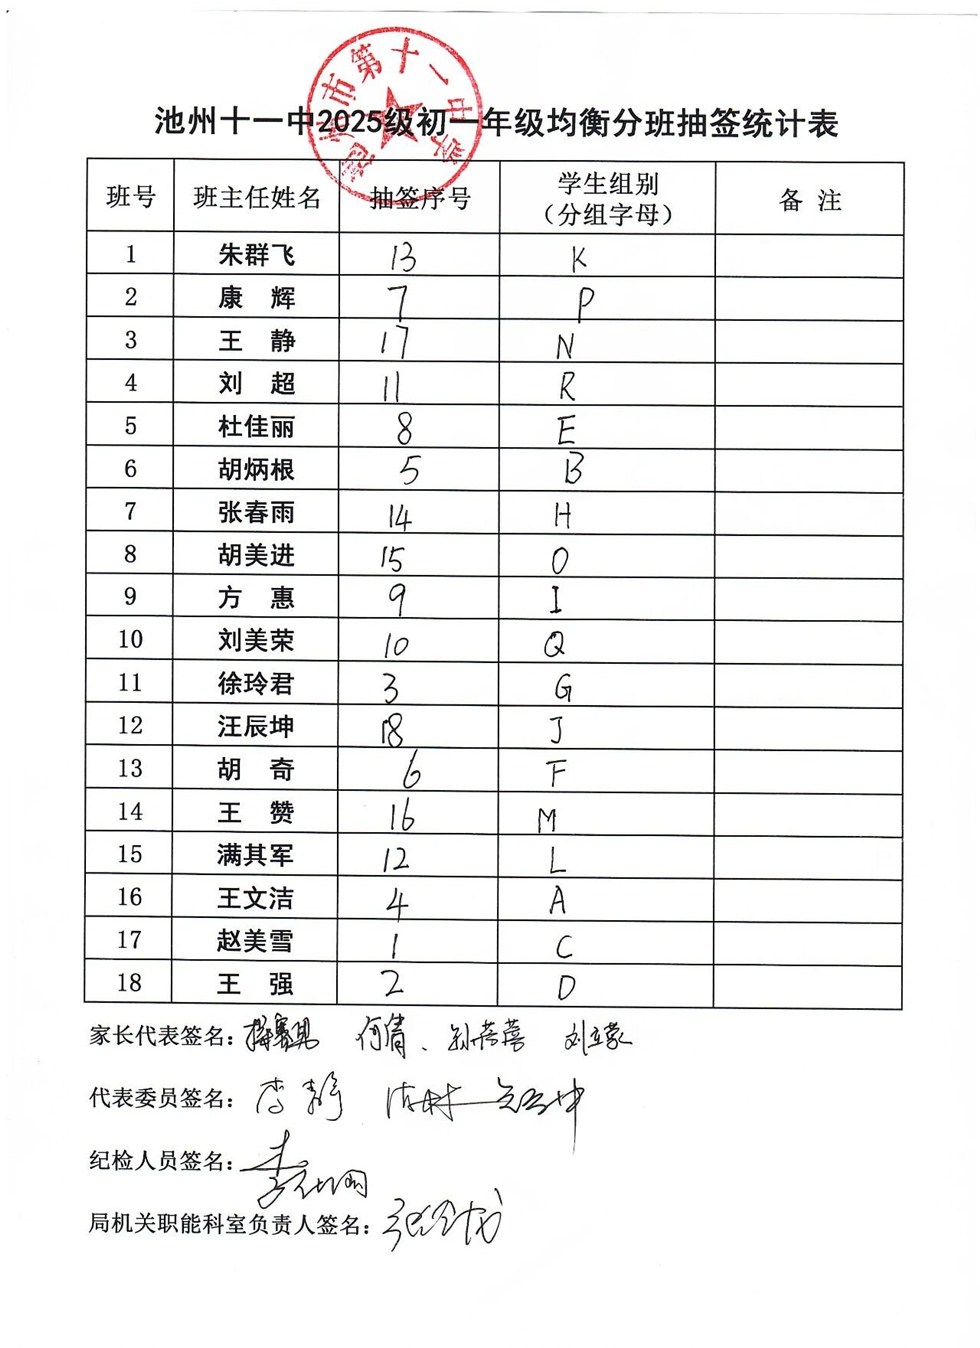 池州市第十一中学
池州十一中2025级初一年级均衡分班抽签统计表
班号 班主任姓名 抽签序号 学生组别（分组字母） 备 注
1 朱群飞 13 K
2 康 辉 7 P
3 王 静 17 N
4 刘 超 11 R
5 杜佳丽 8 E
6 胡炳根 5 B
7 张春雨 14 H
8 胡美进 15 O
9 方 惠 9 I
10 刘美荣 10 Q
11 徐玲君 3 G
12 汪辰坤 18 J
13 胡 奇 6 F
14 王 赞 16 M
15 满其军 12 L
16 王文洁 4 A
17 赵美雪 1 C
18 王 强 2 D
家长代表签名： 何倩、
代表委员签名：
纪检人员签名：
局机关职能科室负责人签名：